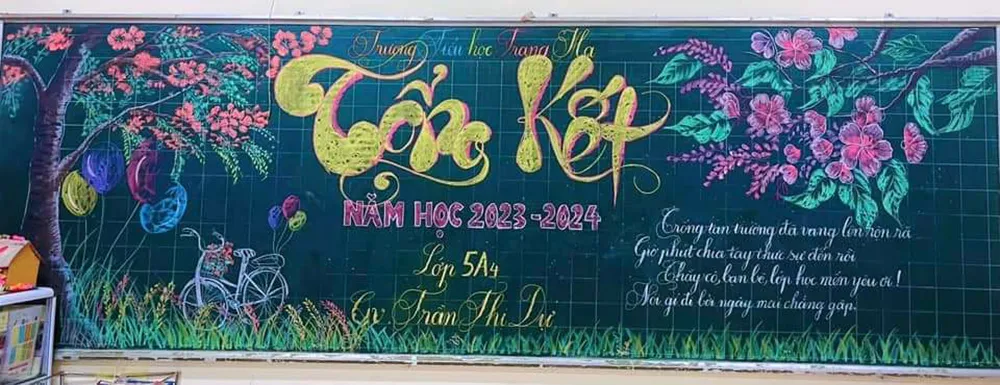 Trường Tiểu học Trang Hạ
Tổng Kết
NĂM HỌC 2023-2024
Lớp 5A4
Gv Trần Thị Dự
Trống tan trường đã vang lên rộn rã
Giờ phút chia tay thực sự đến rồi
Thầy cô, bạn bè, lớp học mến yêu ơi!
Nói gì đi bởi ngày mai chẳng gặp.